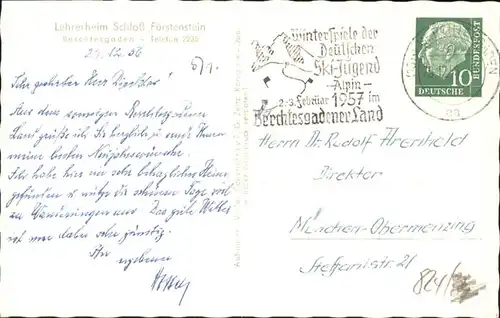 Lehrerheim Schloß Fürstenstein
Berchtesgaden - Telefon 2230
29.12.56
Sehr geehrter Herr Direktor!
Aus dem sonnigen Berchtesgadener
Land grüße ich Sie herzlich u. sende Ihnen
meine besten Neujahrswünsche.
Ich habe hier ein sehr behagliches Heim
gefunden u. nütze die schönen Tage voll
zu Wanderungen aus. Das gute Wetter
ist mir dabei sehr günstig.
Ihr
ergebener
Winterspiele der
Deutschen
Ski-Jugend
-Alpin-
2.-3. Februar 1957 im
Berchtesgadener Land
10
DEUTSCHE
BUNDESPOST
Herrn Dr. Rudolf Ahrenhold
Direktor
München-Obermenzing
Steffanistr. 21
824/